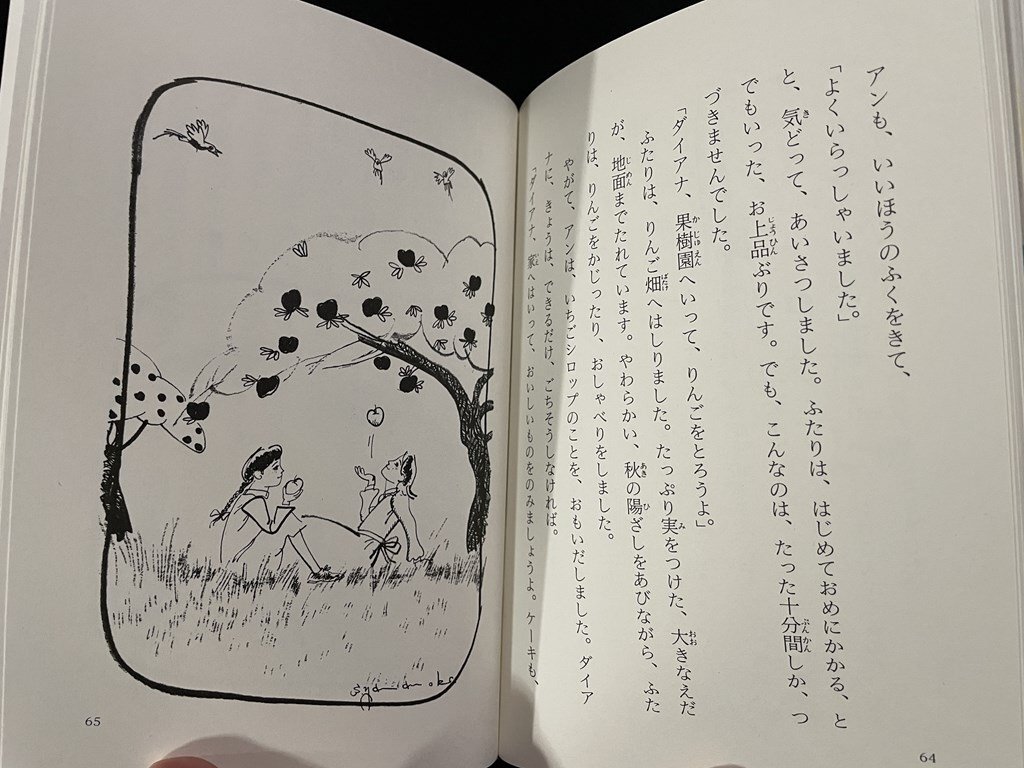 アンも、いいほうのふくをきて、
「よくいらっしゃいました。」
と、気どって、あいさつしました。ふたりは、はじめておめにかかる、と
でもいった、お上品ぶりです。でも、こんなのは、たった十分間しか、つ
づきませんでした。
「ダイアナ、果樹園へいって、りんごをとろうよ。」
ふたりは、りんご畑へはしりました。たっぷり実をつけた、大きなえだ
が、地面までたれています。やわらかい、秋の陽ざしをあびながら、ふた
りは、りんごをかじったり、おしゃべりをしました。
やがて、アンは、いちごシロップのことを、おもいだしました。ダイア
ナに、きょうは、できるだけ、ごちそうしなければ。
「ダイアナ、家へはいって、おいしいものをのみましょうよ。ケーキも、
64
65